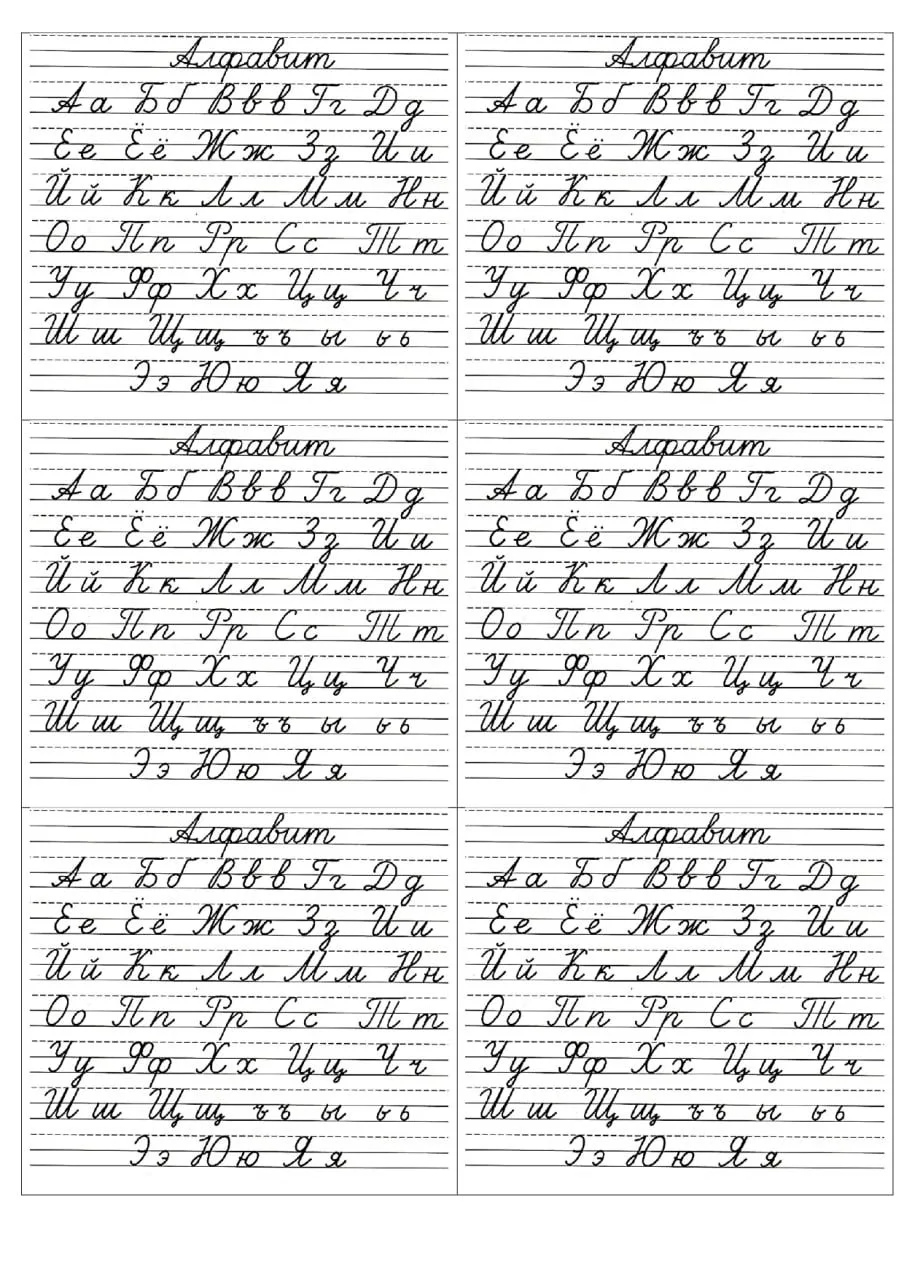 Алфавит
Аа Бб Ввв Гг Дд
Ее Ёё Жж Зз Ии
Йй Кк Лл Мм Нн
Оо Пп Рр Сс Тт
Уу Фф Хх Цц Чч
Шш Щщ ъъ ы ьь
Ээ Юю Яя
Алфавит
Аа Бб Ввв Гг Дд
Ее Ёё Жж Зз Ии
Йй Кк Лл Мм Нн
Оо Пп Рр Сс Тт
Уу Фф Хх Цц Чч
Шш Щщ ъъ ы ьь
Ээ Юю Яя
Алфавит
Аа Бб Ввв Гг Дд
Ее Ёё Жж Зз Ии
Йй Кк Лл Мм Нн
Оо Пп Рр Сс Тт
Уу Фф Хх Цц Чч
Шш Щщ ъъ ы ьь
Ээ Юю Яя
Алфавит
Аа Бб Ввв Гг Дд
Ее Ёё Жж Зз Ии
Йй Кк Лл Мм Нн
Оо Пп Рр Сс Тт
Уу Фф Хх Цц Чч
Шш Щщ ъъ ы ьь
Ээ Юю Яя
Алфавит
Аа Бб Ввв Гг Дд
Ее Ёё Жж Зз Ии
Йй Кк Лл Мм Нн
Оо Пп Рр Сс Тт
Уу Фф Хх Цц Чч
Шш Щщ ъъ ы ьь
Ээ Юю Яя
Алфавит
Аа Бб Ввв Гг Дд
Ее Ёё Жж Зз Ии
Йй Кк Лл Мм Нн
Оо Пп Рр Сс Тт
Уу Фф Хх Цц Чч
Шш Щщ ъъ ы ьь
Ээ Юю Яя